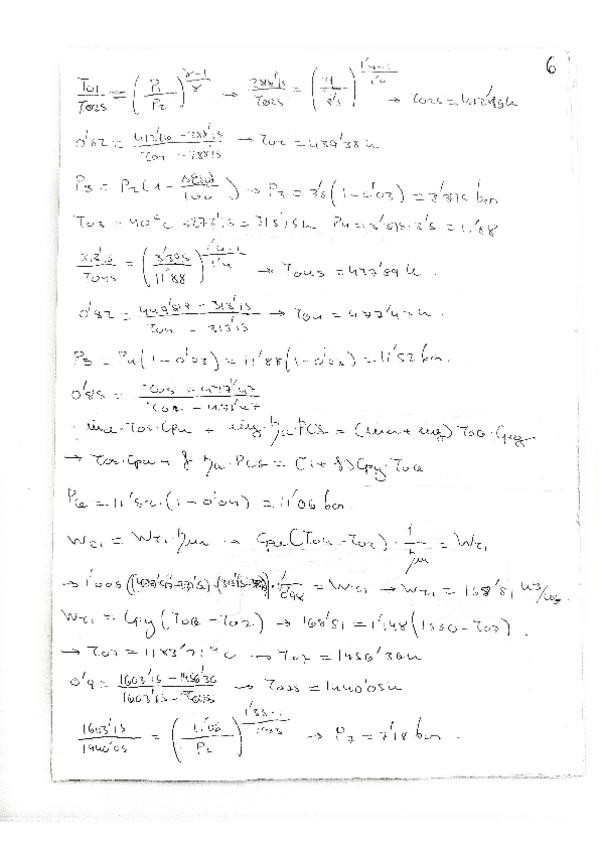 6
T01/T02s = (P1/P2)^(γ-1/γ) → 288'15/T02s = (1/3'5)^(1'4-1/1'4) → T02s = 412'16k
0'82 = 412'16 - 288'15 / T02 - 288'15 → T02 = 439'38k
P3 = P2(1 - /100) → P3 = 3'5(1-0'03) = 3'395 bar
T03 = 40°C + 273'15 = 313'15k P4 = 3'395·3'5 = 11'88
313'15/T04s = (3'395/11'88)^(1'4-1/1'4) → T04s = 447'89k.
0'82 = 447'89 - 313'15 / T04 - 313'15 → T04 = 477'47k.
P5 = P4(1-0'03) = 11'88(1-0'03) = 11'52 bar.
0'85 = T05 - 477'47 / T0 - 477'47
→ T05·Cpa + f ηcc·PCS = (1+f)Cpg·T06
P6 = 11'52·(1-0'04) = 11'06 bar.
WC1 = WT1·ηm → Cpa(T04 - T02)·1/ηm = WT1
→ WT1 = 168'81
WT1 = Cpg(T06 - T07) → 168'81 = 1'148(1330 - T07).
→ T07 = 1183'21°C → T07 = 1456'36k
0'9 = 1603'15 - 1456'36 / 1603'15 - T07s → T07s = 1440'05k
1603'15/1440'05 = (11'06/P7)^(1'33-1/1'33) → P7 = 7'18 bar.